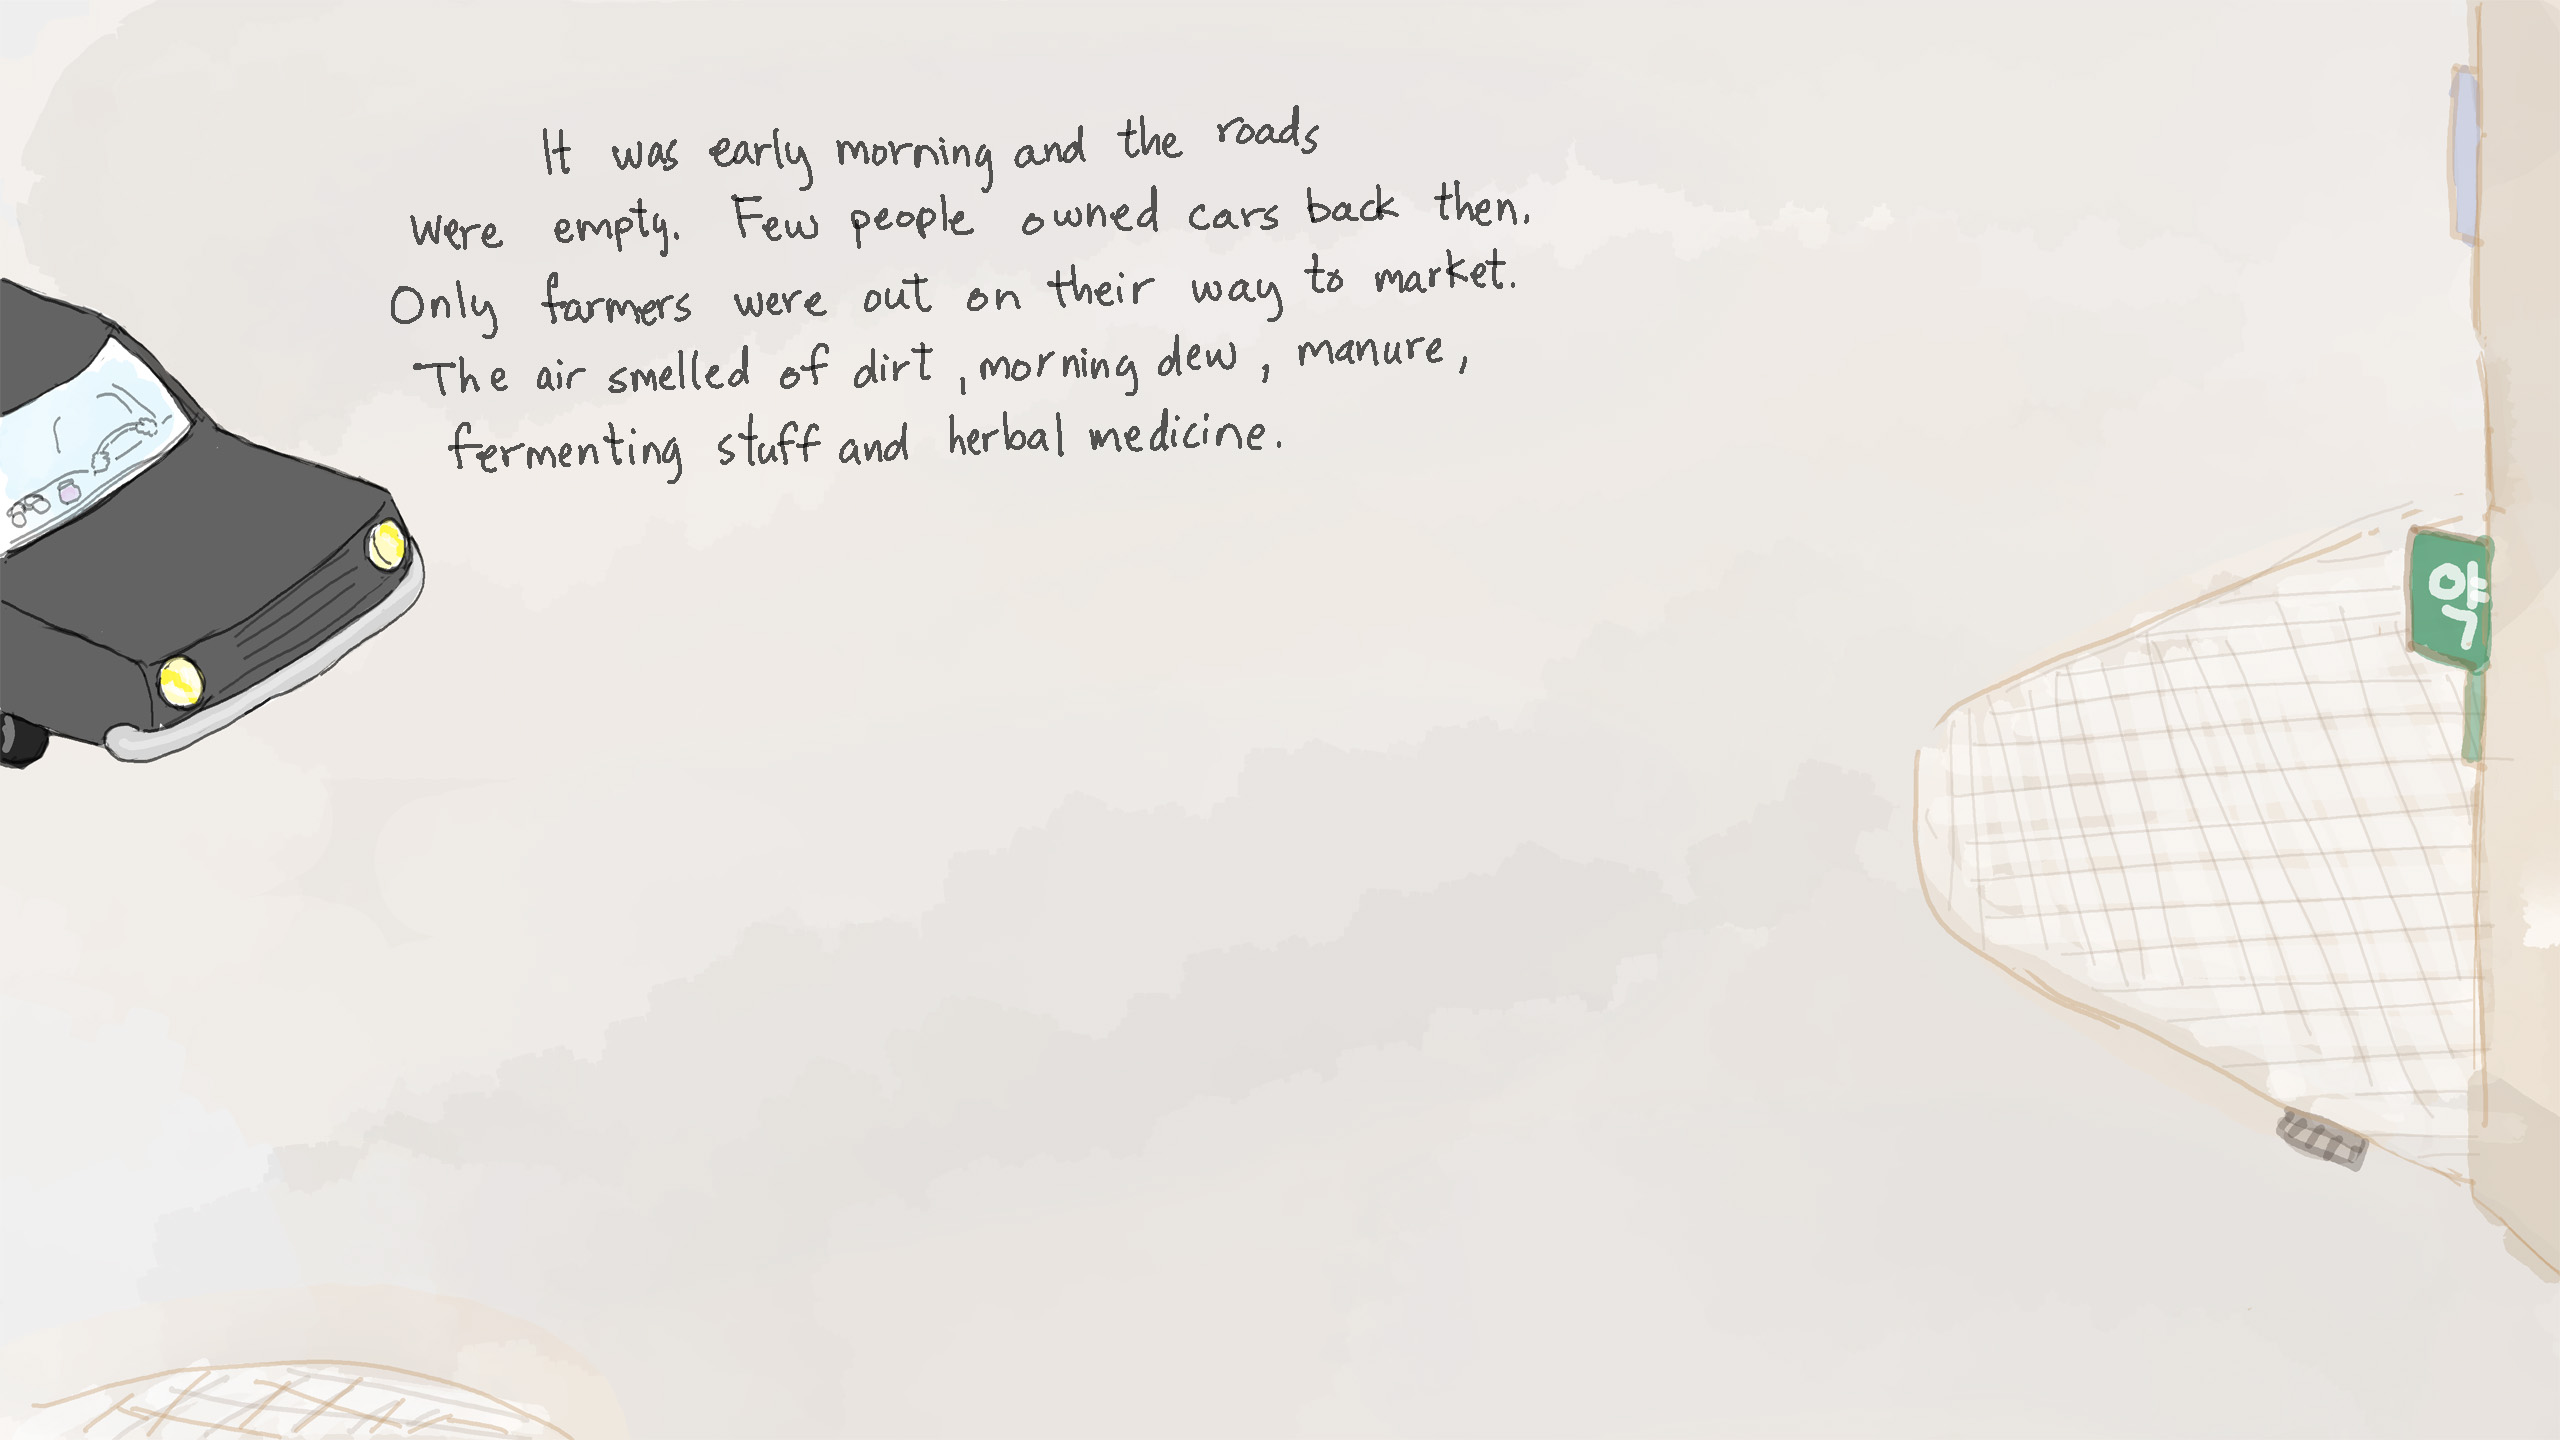 It was early morning and the roads
were empty. Few people owned cars back then.
Only farmers were out on their way to market.
The air smelled of dirt, morning dew, manure,
fermenting stuff and herbal medicine.
약